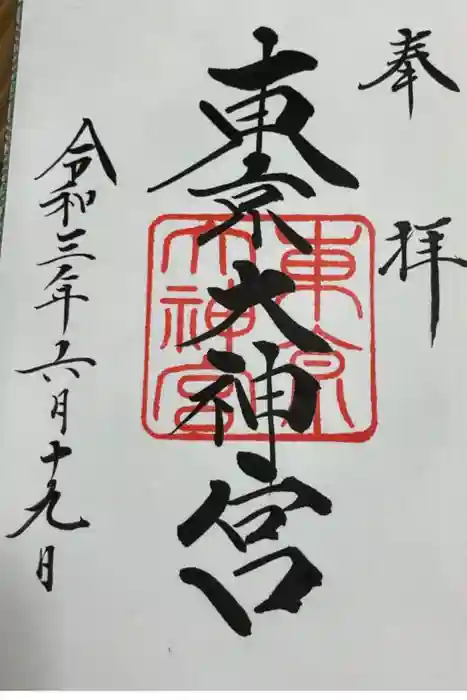 奉拝
東京大神宮
東京
大神宮
令和三年六月十九日